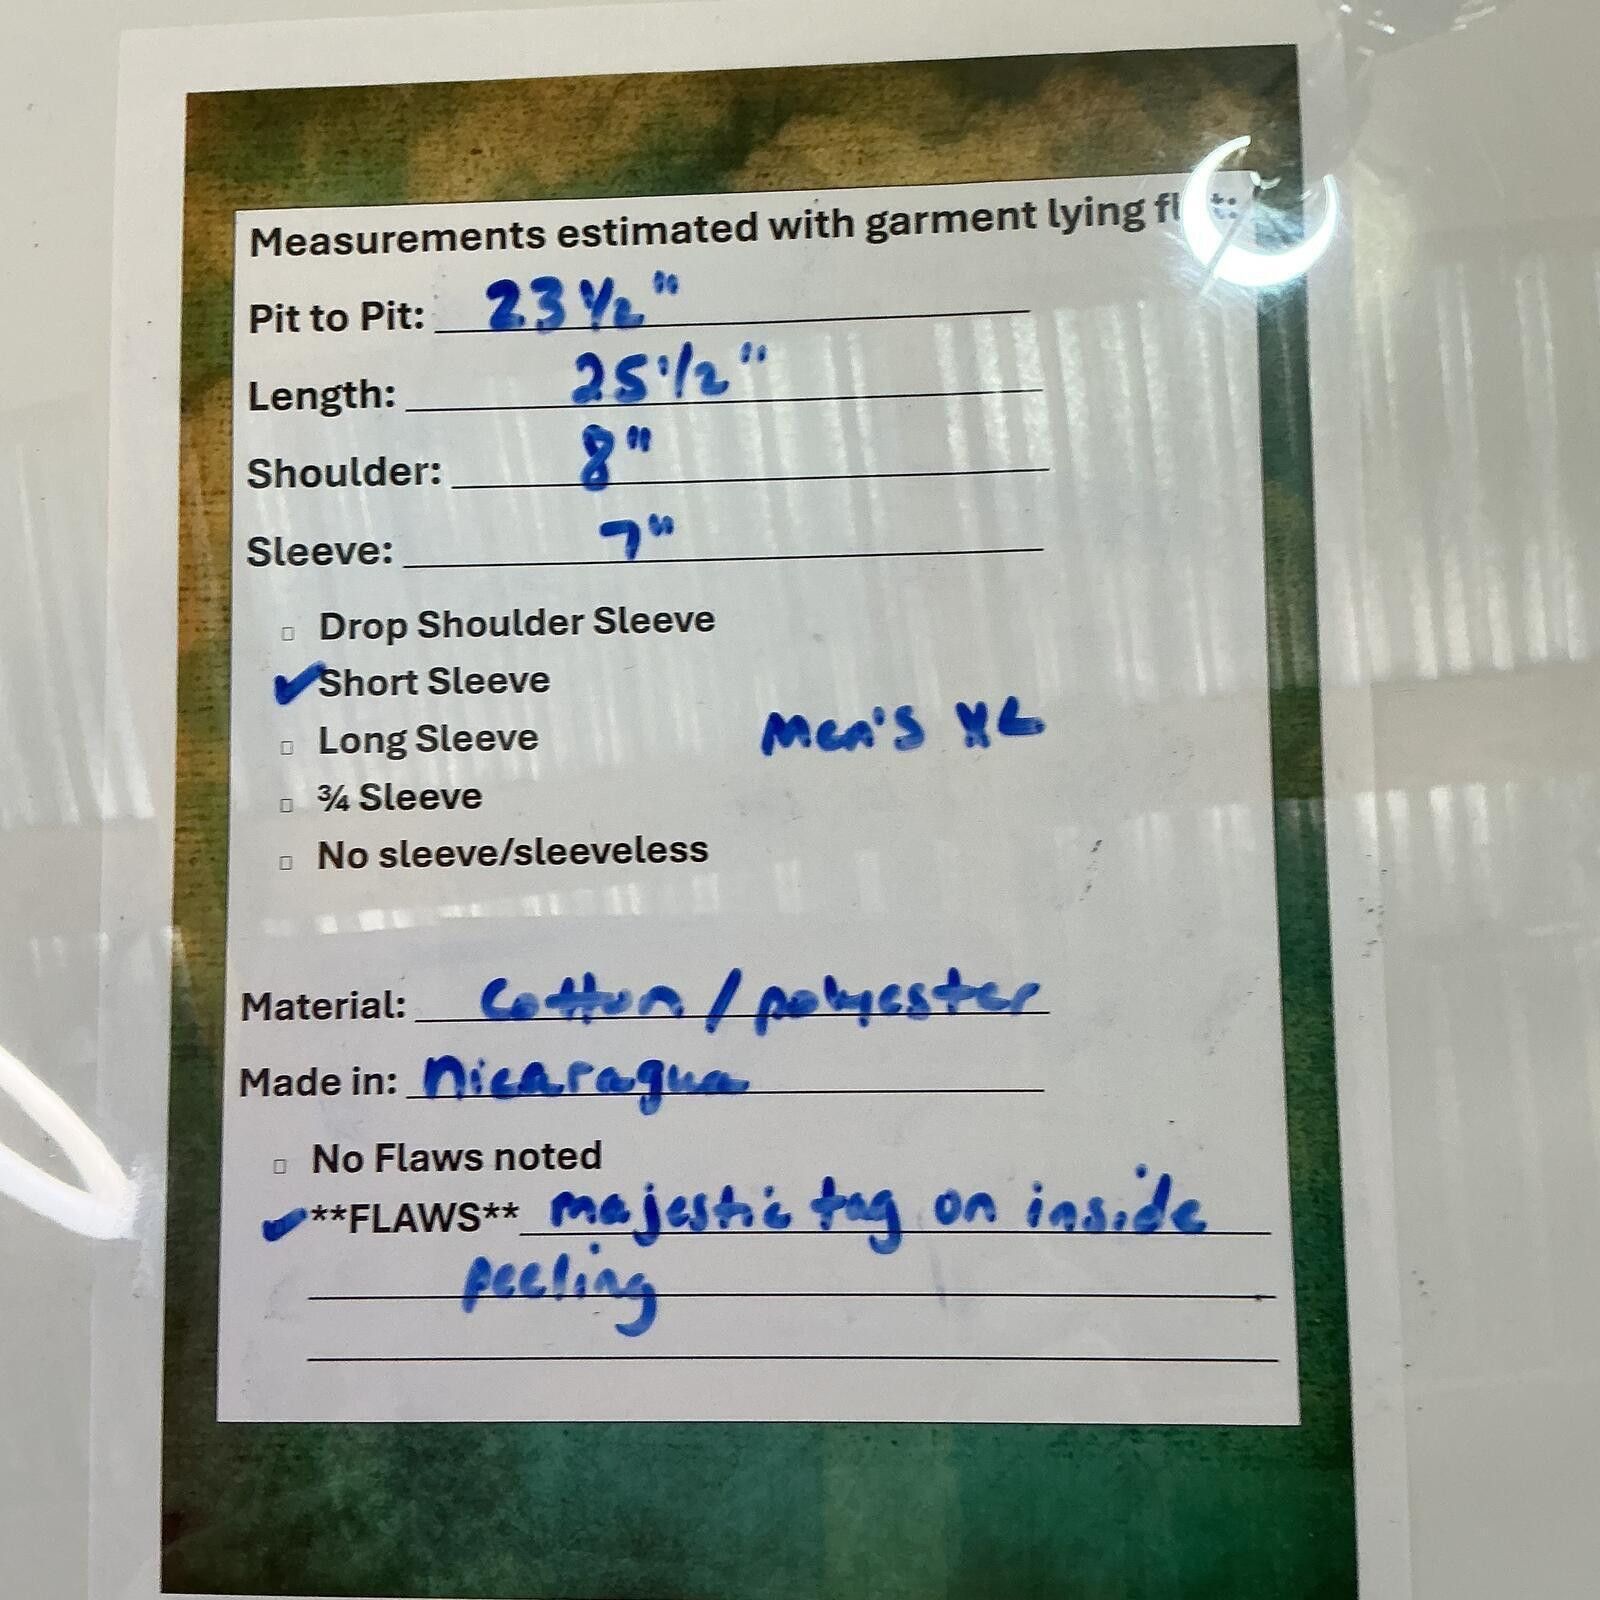 Measurements estimated with garment lying
Pit to Pit: 23 1/2"
Length: 25 1/2"
Shoulder: 8"
Sleeve: 7"
Drop Shoulder Sleeve
✔ Short Sleeve
Long Sleeve
Men's XL
¾ Sleeve
No sleeve/sleeveless
Material: Cotton / polyester
Made in: Nicaragua
No Flaws noted
✔ **FLAWS** majestic tag on inside
peeling